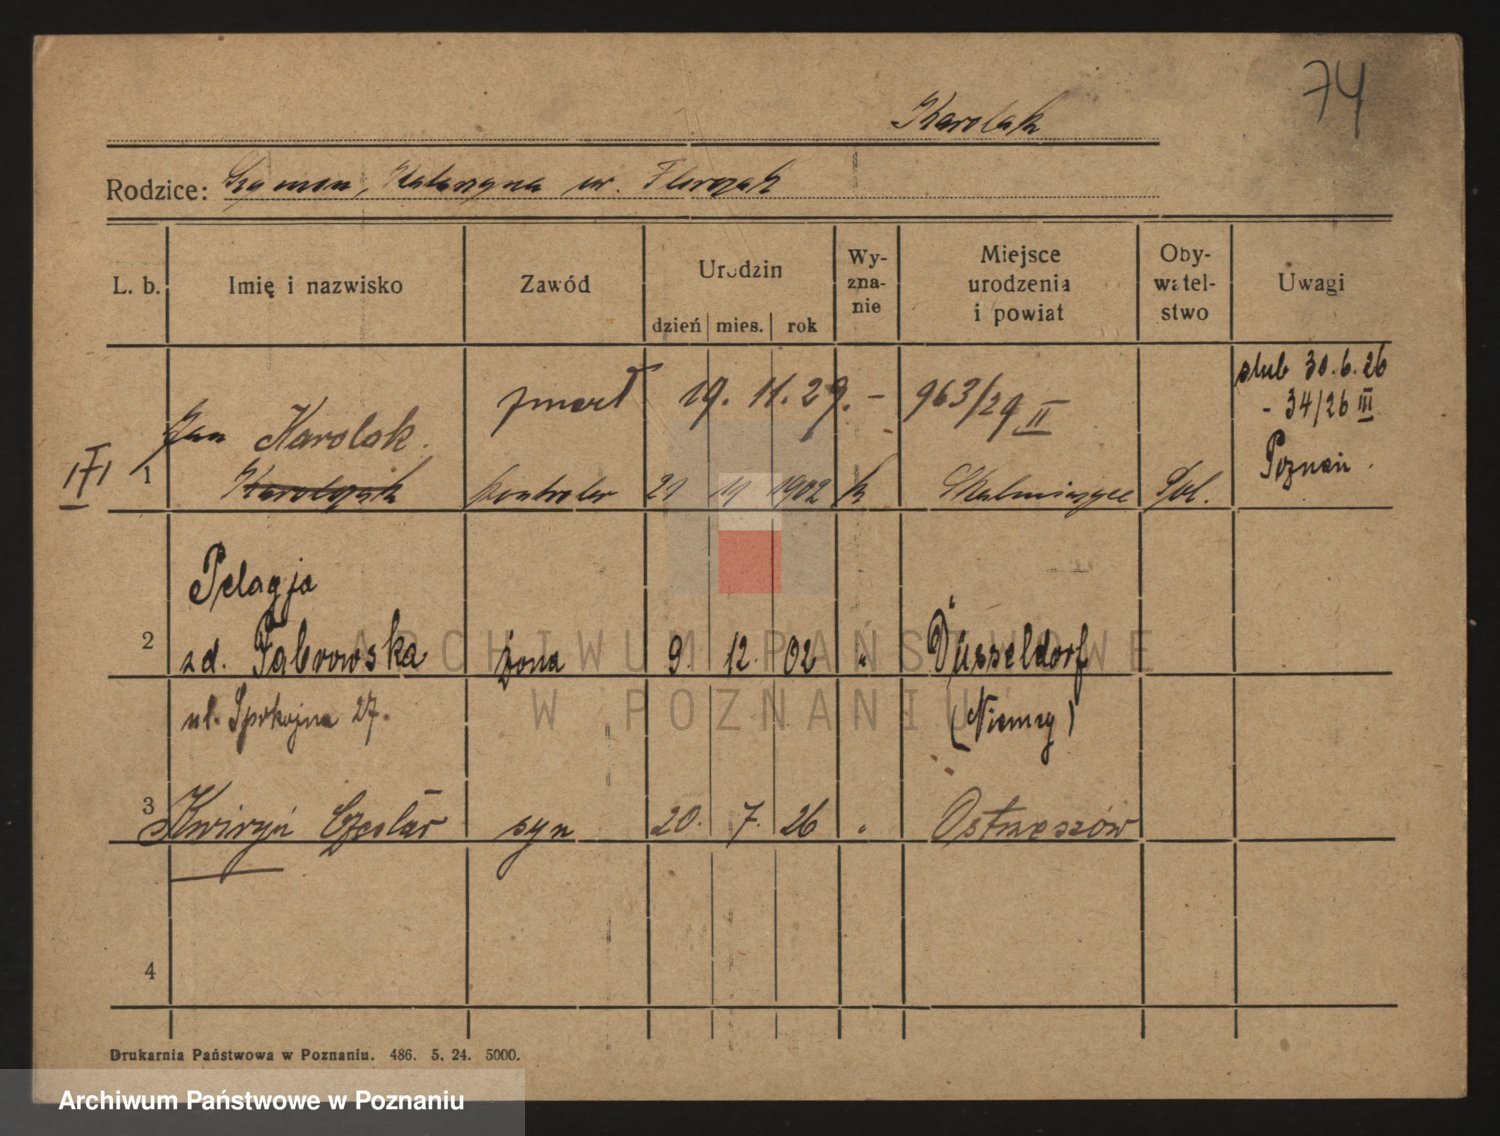 74
Karolak
Rodzice: Szymon, Katarzyna ur. Florczak
L. b. Imię i nazwisko Zawód Urodzin dzień mies. rok Wy-zna-nie Miejsce urodzenia i powiat Oby-watel-stwo Uwagi
zmarł 19. 11. 29. – 963/29 II
ślub 30.6.26
- 34/26 III
Poznań.
Jan Karolak.
1 kontroler 21 11 1902 k Pol.
Pelagja
2 zd. Fabrowska żona 9. 12. 02 " Düsseldorf
ul. Spokojna 27. (Niemcy)
3 Kwiryn Czesław syn 20. 7. 26 " Ostrzeszów
4
Drukarnia Państwowa w Poznaniu. 486. 5. 24. 5000.
ARCHIWUM PAŃSTWOWE
W POZNANIU
Archiwum Państwowe w Poznaniu